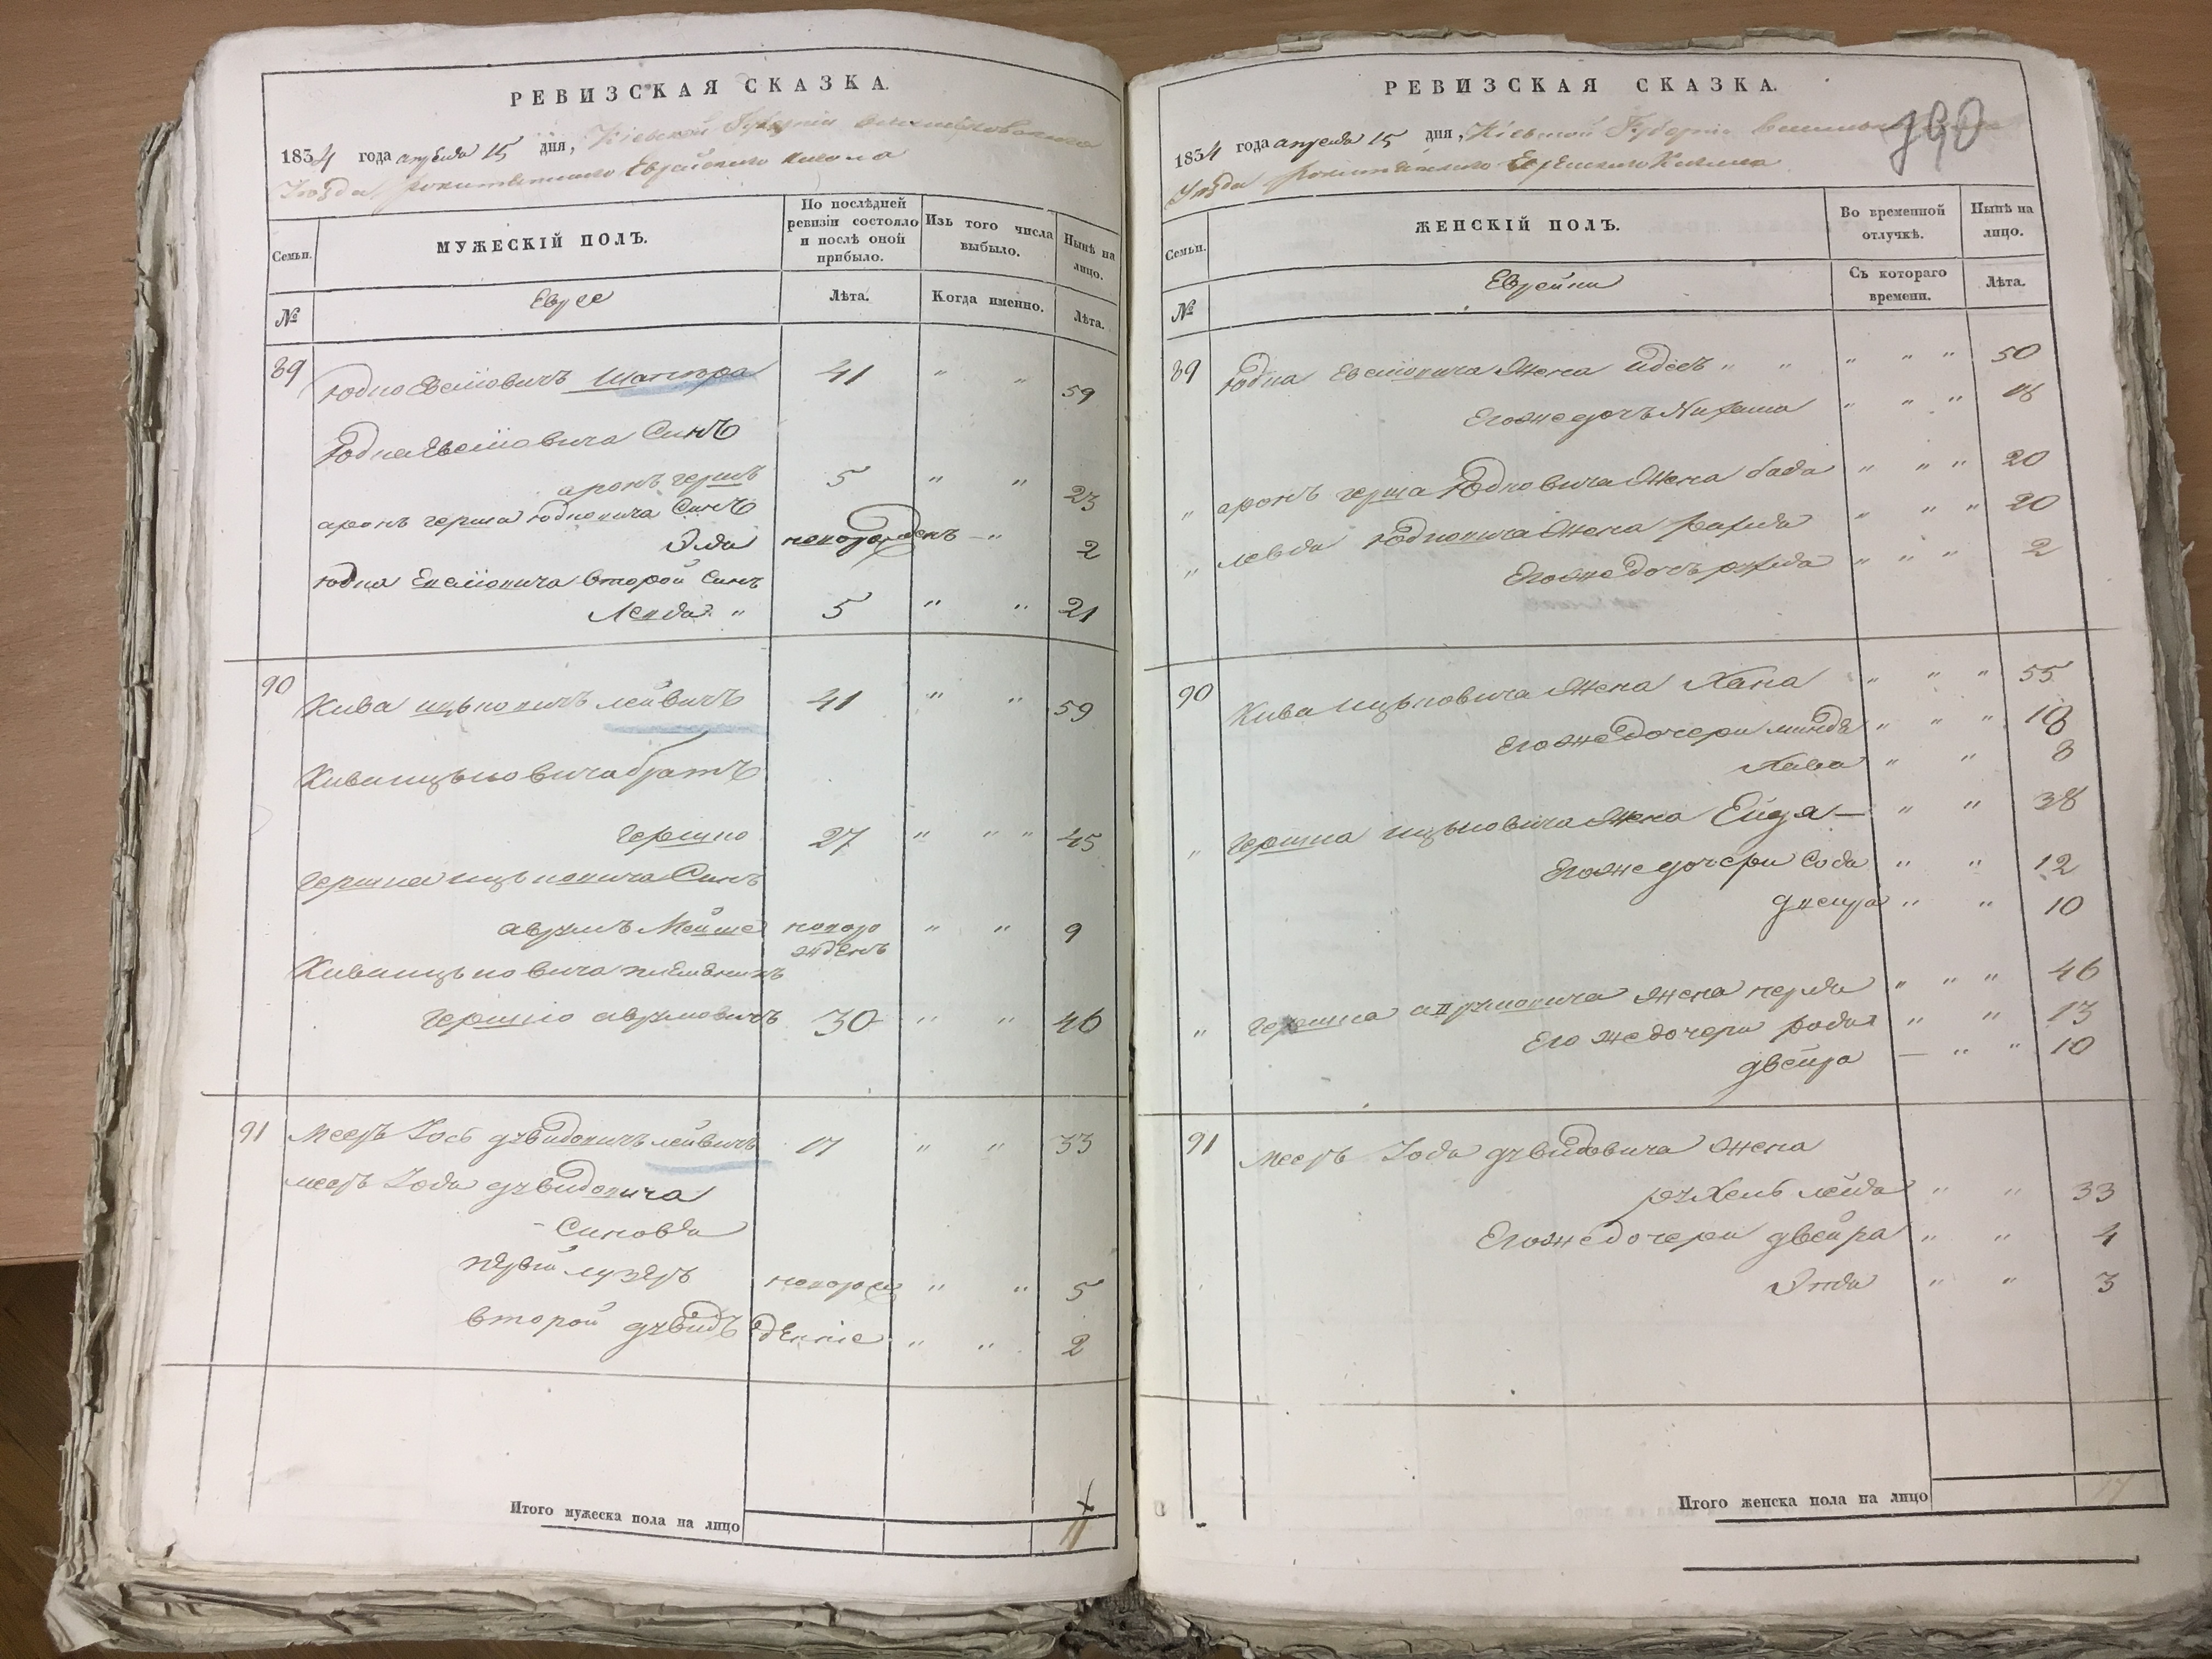 РЕВИЗСКАЯ СКАЗКА.
1834 года апреля 15 дня, Кіевской Губерніи
Уезда Еврейского кагала
Семьи.
МУЖЕСКІЙ ПОЛЪ.
По последней ревизіи состояло и послѣ оной прибыло.
Изъ того числа выбыло.
Нынѣ на лицо.
№
Евреи
Лѣта.
Когда именно.
Лѣта.
89 Юдко Евсіовичъ Шапира 41 " " 59
Юдка Евсіовича Синъ
аронъ гершъ 5 " " 23
аронъ герша Юдковича Синъ
Эля новорожденъ — " 2
Юдка Евсіовича второй Синъ
Левда " 5 " " 21
90 Кива ицьковичъ лейвичъ 41 " " 59
Кива ицьковича братъ
Гершко 27 " " " 45
Гершка ицьковича Синъ
аврумъ Мойше новорожденъ " " 9
Кива ицьковича племянникъ
Гершко аврумовичъ 30 " " 46
91 Мееръ Іось дувидовичъ лейвичъ 17 " " 33
мееръ Іося дувидовича
- Синовя
первій лузеръ новорож " " 5
второй дувидъ денніе " " 2
Итого мужеска пола на лицо 11
РЕВИЗСКАЯ СКАЗКА.
790
1834 года апреля 15 дня, Кіевской Губерніи
Уезда Еврейского Кагала
Семьи.
ЖЕНСКІЙ ПОЛЪ.
Во временной отлучкѣ.
Нынѣ на лицо.
№
Еврейки
Съ котораго времени.
Лѣта.
89 Юдка Евсіовича Жена " " " " " 50
Егожедочъ " " "
" аронъ герша Юдковича Жена бася " " " 20
" левда Юдковича Жена рахля " " " 20
Егожедочъ " " " 2
90 Кива ицьковича Жена Хана " " " 55
Егожедочери минде " " " 18
Хава " " 8
" Гершка ицьковича Жена Ейдя — " " 38
Егожедочери Сося " " 12
двейра " " 10
" Гершка аврумовича Жена перля " " " 46
Его жедочери родя " " 13
двейра — " " 10
91 Мееръ Іося дувидовича Жена
рухель лейя " " 33
Егожедочери двейра " " 4
Этя " " 3
Итого женска пола на лицо